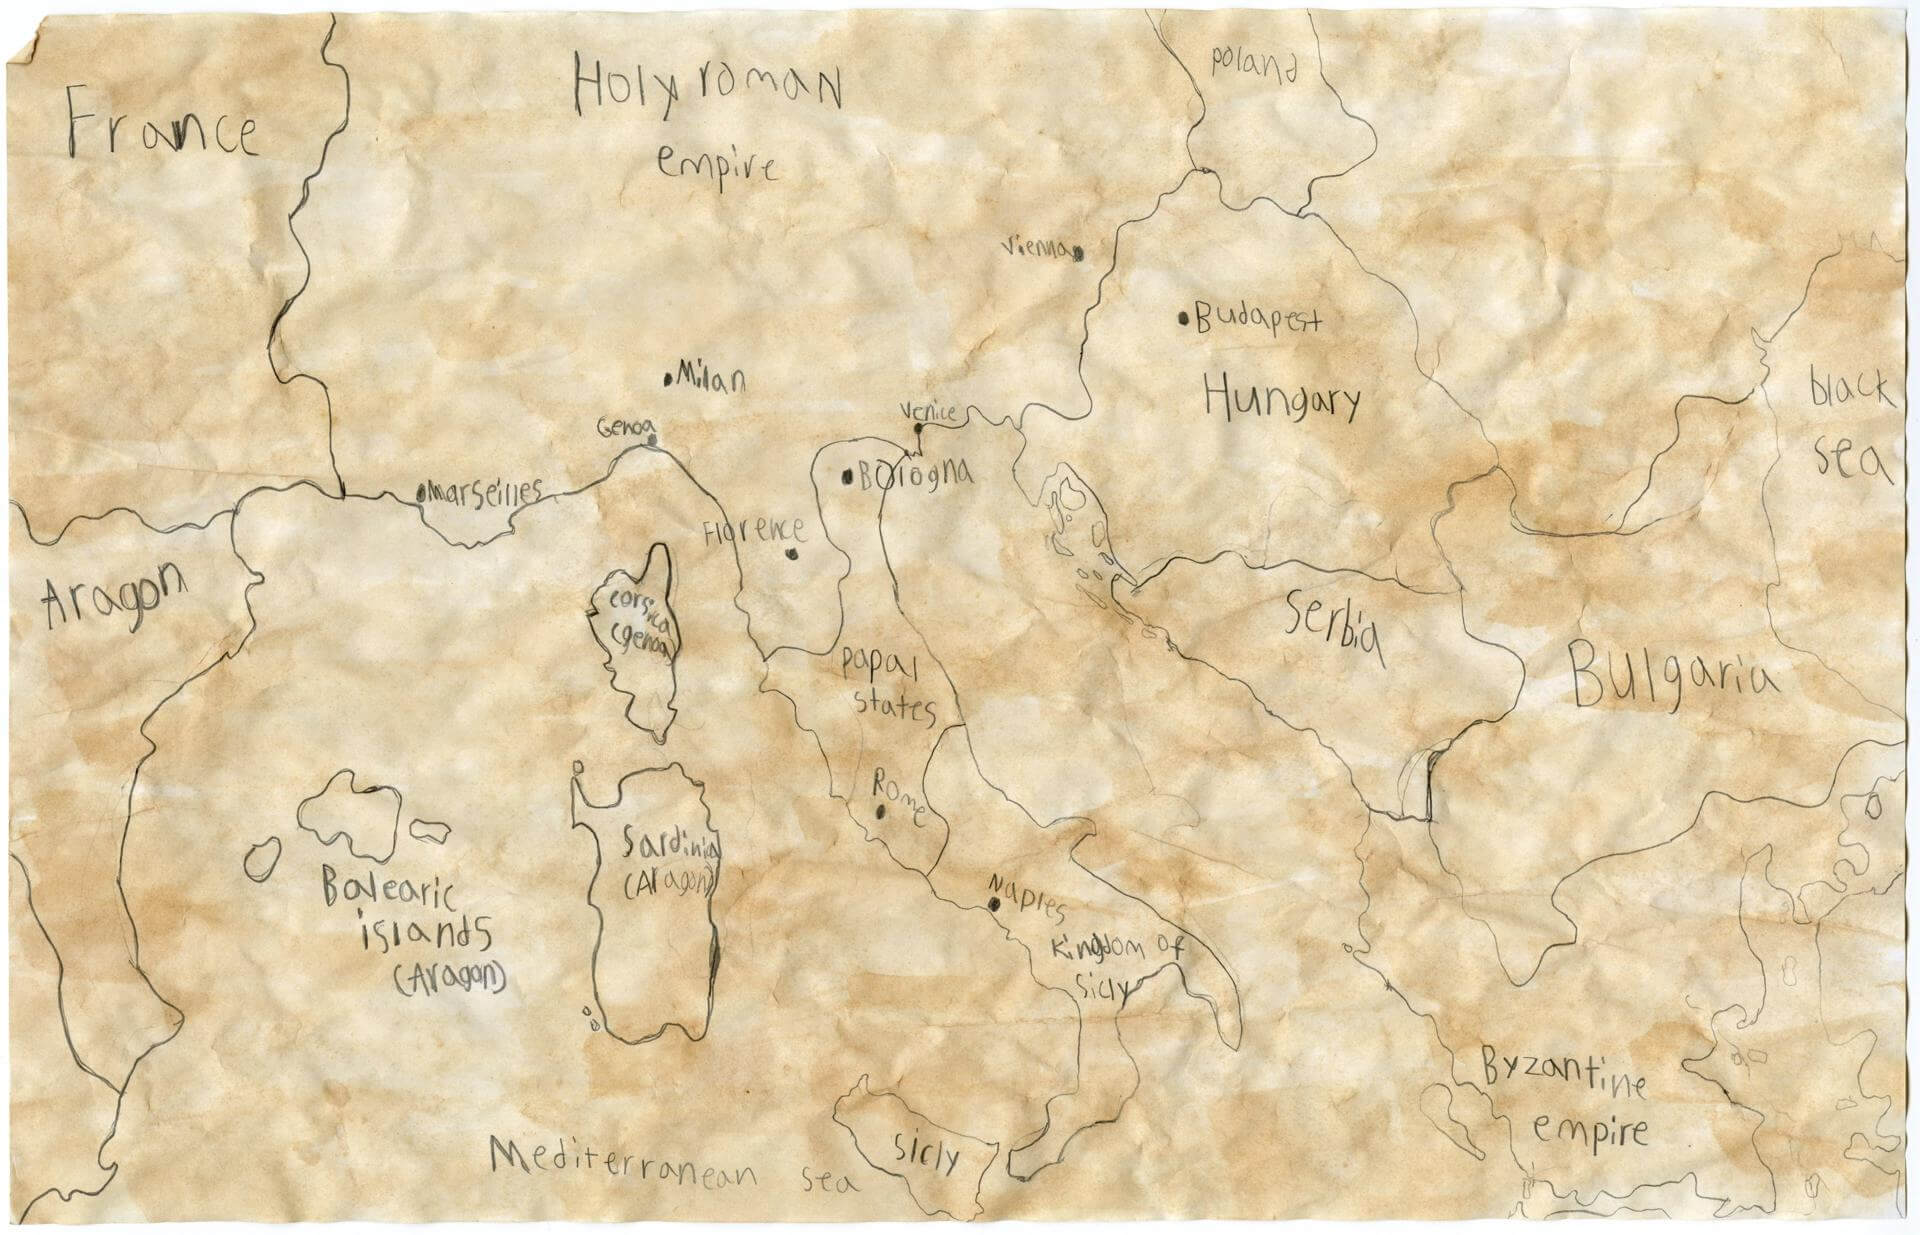 France
Holy roman
empire
poland
Vienna
Budapest
Hungary
Milan
Genoa
Venice
black
sea
Marseilles
Bologna
Florence
Aragon
corsica
(genoa)
Serbia
Bulgaria
papal
states
Rome
Sardinia
(Aragon)
Balearic
islands
(Aragon)
Naples
Kingdom of
Sicly
Byzantine
empire
Sicly
Mediterranean sea